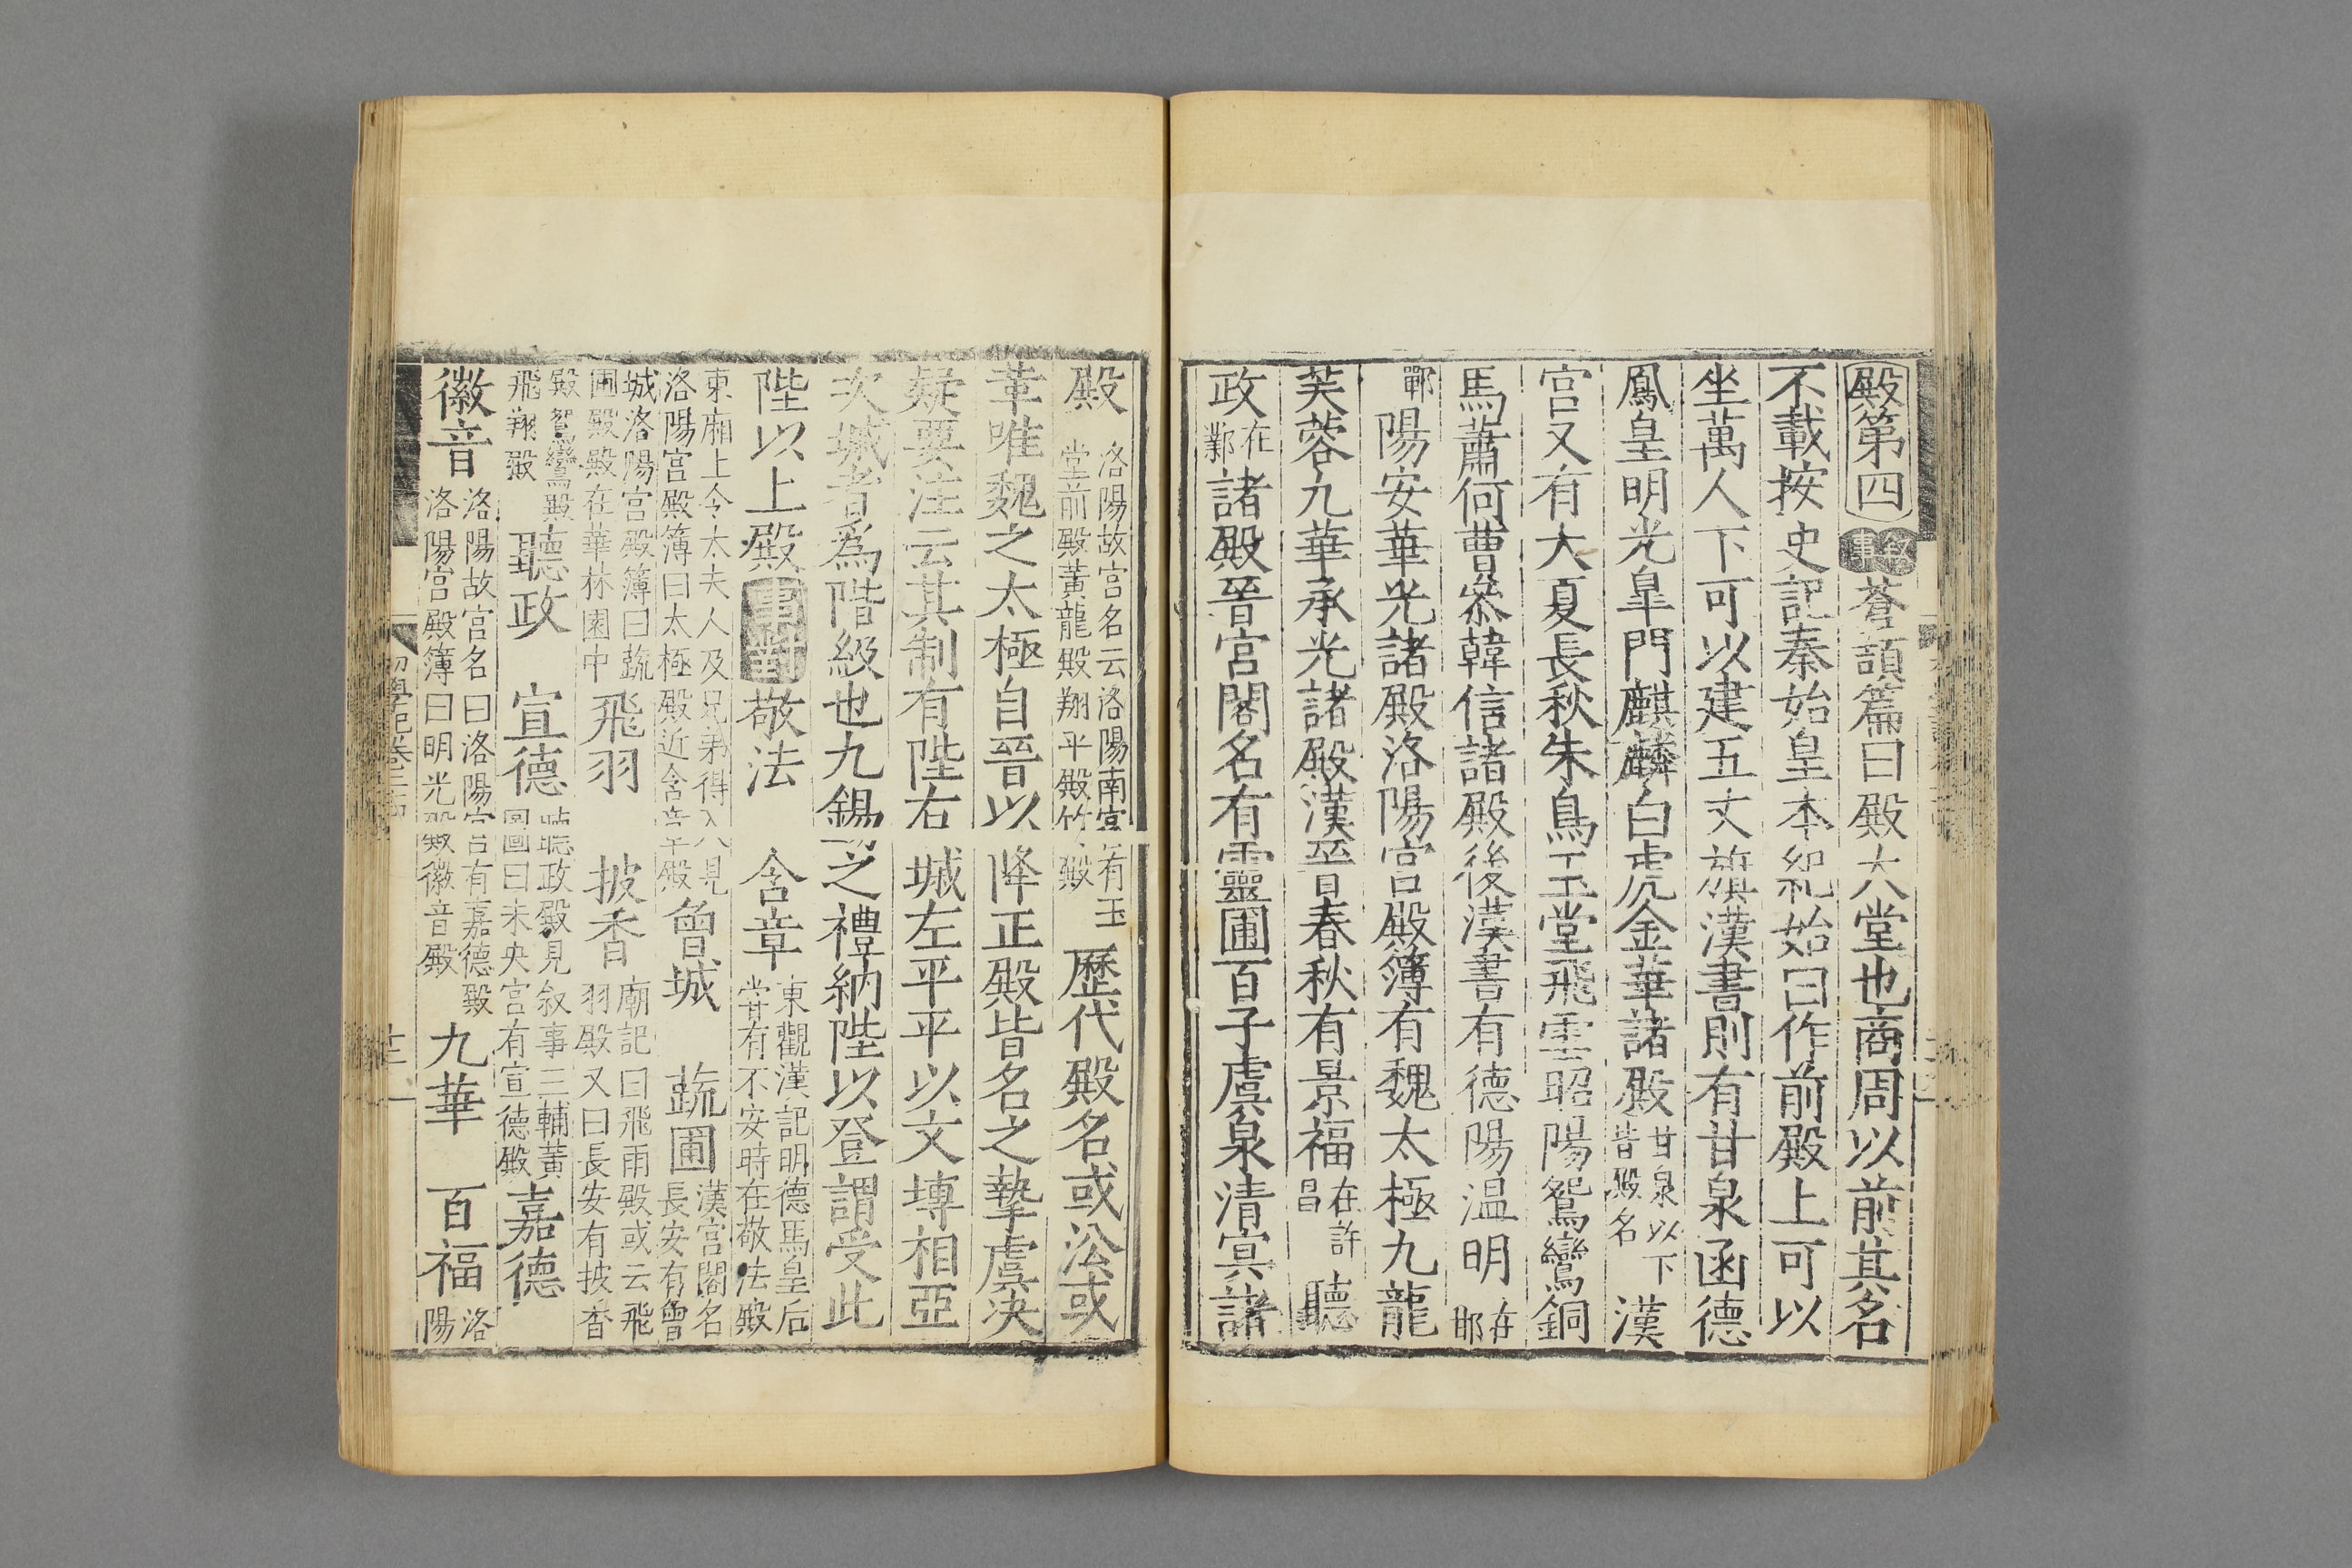 殿第四 敘事 蒼頡篇曰殿大堂也商周以前其名
不載按史記秦始皇本紀始曰作前殿上可以
坐萬人下可以建五丈旗漢書則有甘泉函德
鳳皇明光皐門麒麟白虎金華諸殿 甘泉以下皆殿名 漢
宮又有大夏長秋朱鳥玉堂飛雲昭陽鴛鸞銅
馬蕭何曹參韓信諸殿後漢書有德陽温明 在邯
鄲 陽安華光諸殿洛陽宮殿簿有魏太極九龍
芙蓉九華承光諸殿漢晉春秋有景福 在許昌 聽
政 在鄴 諸殿晉宮閣名有靈圃百子虞泉清㝠諸
殿 洛陽故宮名云洛陽南宮有玉堂前殿黃龍殿翔平殿竹殿 歷代殿名或㳂或
革唯魏之太極自晉以降正殿皆名之摯虞決
疑要注云其制有陛右城左平平以文塼相亞
次城者爲階級也九錫之禮納陛以登謂受此
陛以上殿 事對 敬法 含章 東觀漢記明德馬皇后嘗有不安時在敬法殿
東廂上令太夫人及兄弟得入見洛陽宮殿簿曰太極殿近含章殿 曾城 蔬圃 漢宮閣名長安有曾
城洛陽宮殿簿曰蔬圃殿殿在華林園中 飛羽 披香 廟記曰飛雨殿或云飛羽殿又曰長安有披香
殿鴛鸞殿飛翔殿 聽政 宣德 聽政殿見敘事三輔黃圖曰未央宮有宣德殿 嘉德
徽音 洛陽故宮名曰洛陽宮有嘉德殿洛陽宮殿簿曰明光殿徽音殿 九華 百福 洛陽